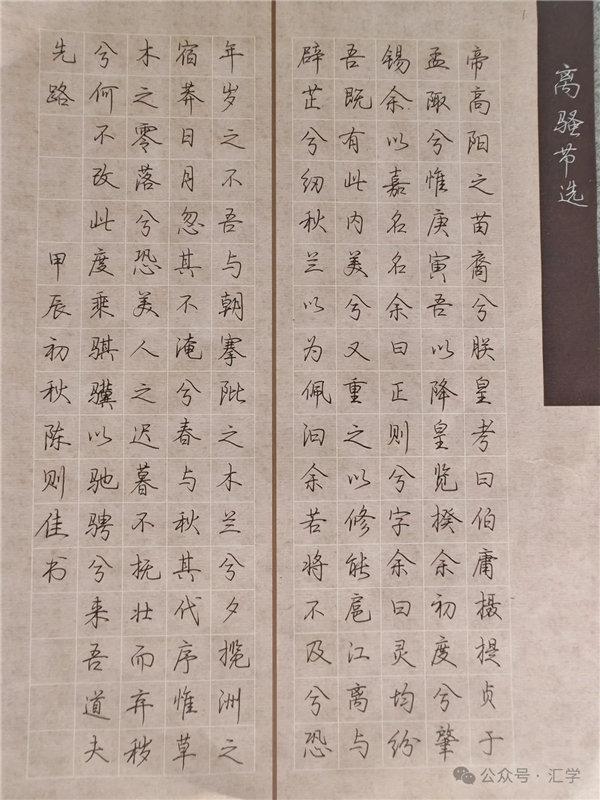 离骚节选
帝高阳之苗裔兮朕皇考曰伯庸摄提贞于
孟陬兮惟庚寅吾以降皇览揆余初度兮肇
锡余以嘉名名余曰正则兮字余曰灵均纷
吾既有此内美兮又重之以修能扈江离与
辟芷兮纫秋兰以为佩汩余若将不及兮恐
年岁之不吾与朝搴阰之木兰兮夕揽洲之
宿莽日月忽其不淹兮春与秋其代序惟草
木之零落兮恐美人之迟暮不抚壮而弃秽
兮何不改此度乘骐骥以驰骋兮来吾道夫
先路 甲辰初秋陈则佳书
公众号·汇学